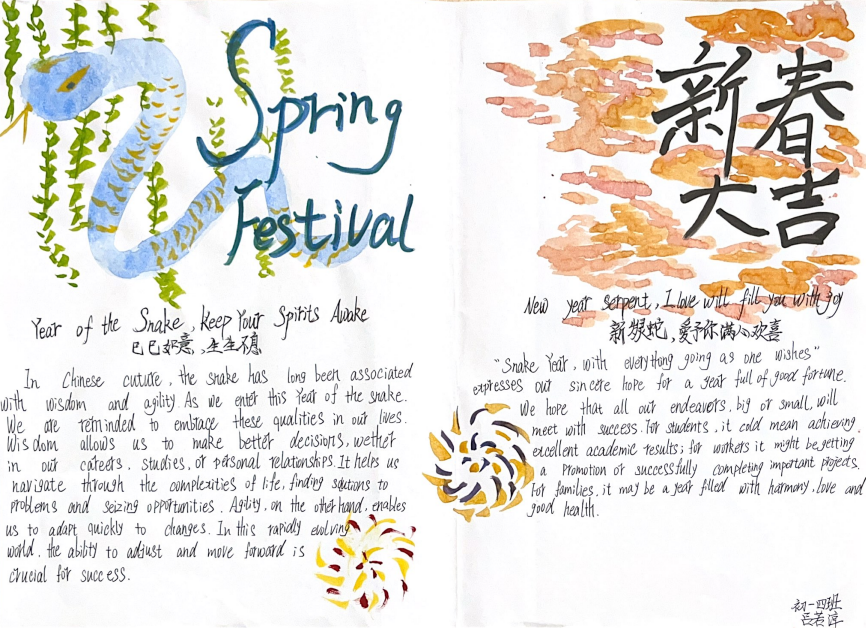 Spring
Festival
Year of the Snake, Keep Your Spirits Awake
巳巳如意,生生不息
In Chinese cuture, the snake has long been associated
with wisdom and agility. As we enter this Year of the snake.
We are reminded to embrace these qualities in our lives.
Wisdom allows us to make better decisions, wether
in our careers, studies, or personal relationships. It helps us
navigate through the complexities of life, finding solutions to
problems and seizing opportunities. Agility, on the other hand, enables
us to adapt quickly to changes. In this rapidly evolving
world, the ability to adjust and move forward is
crucial for success.
新春
大吉
New year serpent, I love will fill you with joy
新年蛇,爱予你满心欢喜
"Snake Year, with everything going as one wishes"
expresses our sincere hope for a year full of good fortune.
We hope that all our endeavors, big or small, will
meet with success. For students, it could mean achieving
excellent academic results; for workers it might be getting
a promotion or successfully completing important projects.
For families, it may be a year filled with harmony, love and
good health.
初一四班
吕若淳